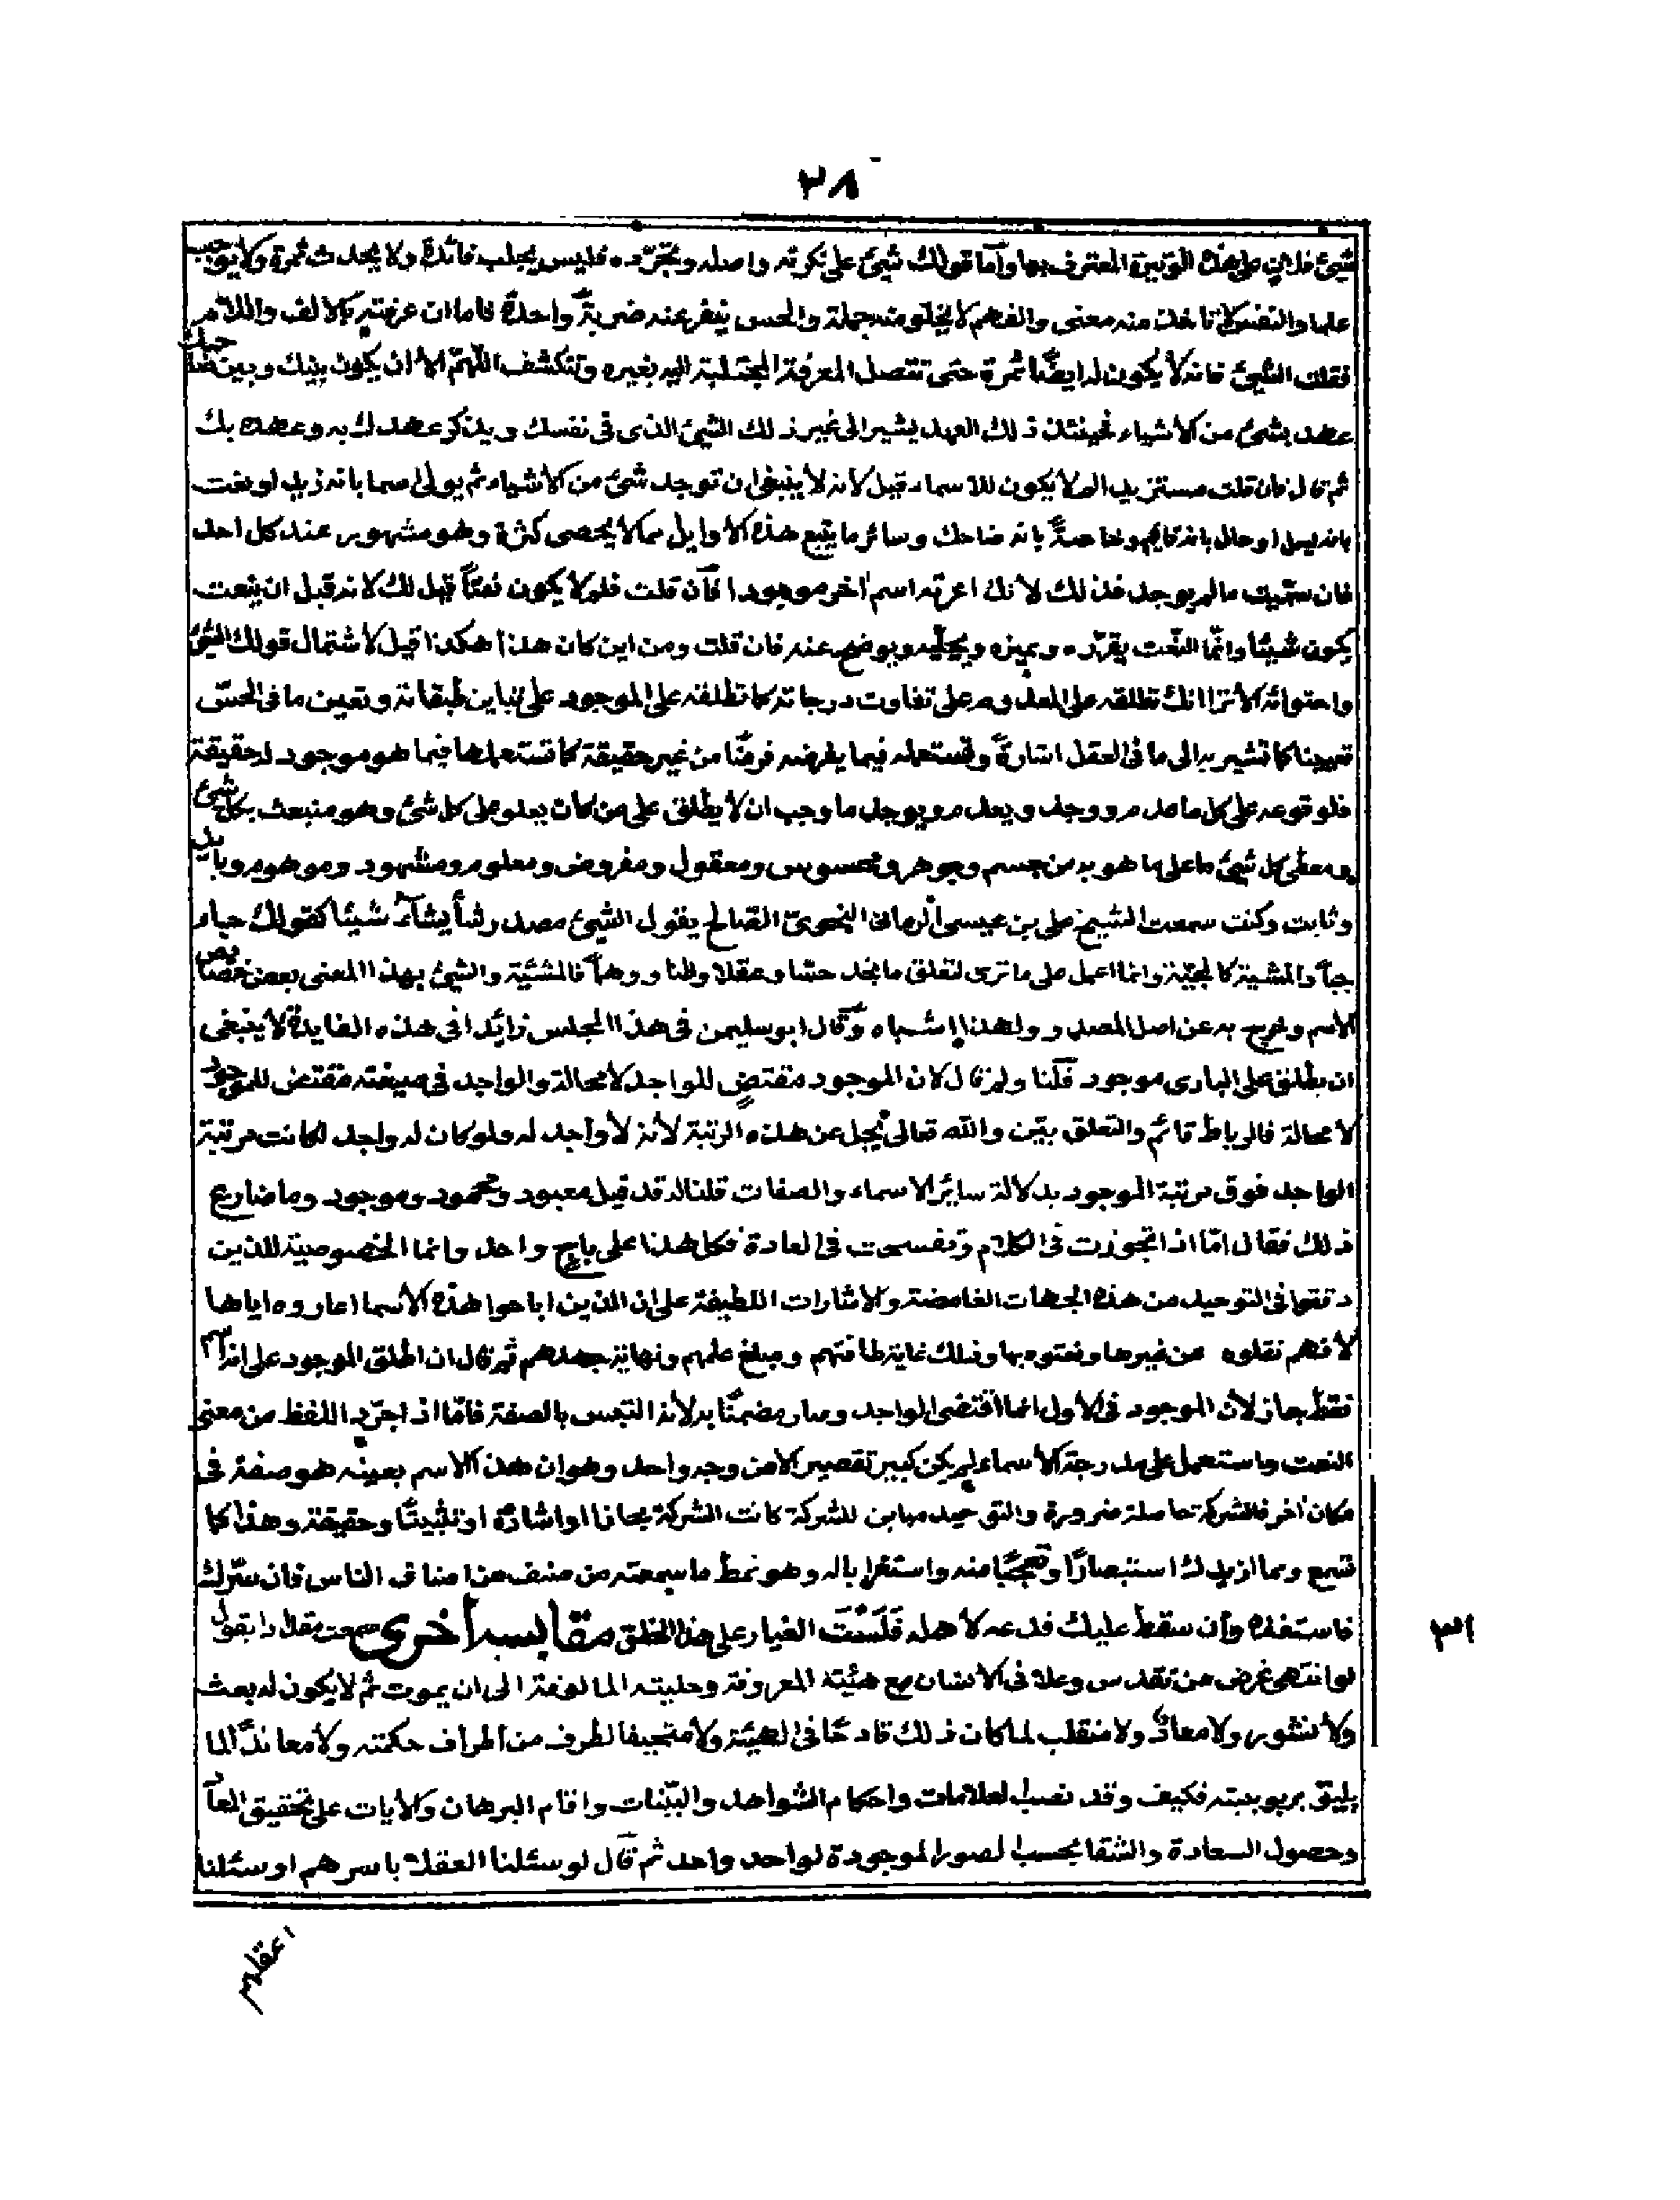 ٣٨
شيئ فلان على هذه الوتيرة المعترف بها وأما قولك شيئ على نكرته واصله وتجرّده فليس يجلب فائدة ولا يحدث ثمرة ولا يوجب
علما والنفس لا تاخذ منه معنى والفهم لا يخلو منه جملة والحس ينفر عنه ضربةً واحدةً فاما ان عرفته بالالف واللام
فقلت الشيئ فانه لا يكون له ايضًا ثمرة حتى تتصل المعرفة المجتلبة اليه بغيره وتنكشف اللهمّ الا ان يكون بينك وبين صاحبك
عهد بشيئ من الاشياء فحينئذ ذلك العهد يشير الى غير ذلك الشيئ الذى فى نفسك ويذكر عهدك به وعهده بك
ثم قال فان قلت مستزيدا لم لا يكون للاسماء قبل لانه لا ينبغى ان توجد شئ من الاشياء ثم يولى اسما بانه زيد او نعت
بانه او حال بانه قايم وخاصةً بانه ضاحك وسائر ما يتبع هذه الاوايل مما لا يحصى كثرة وهو مشهور عند كل احد
فان سمّيت ما لم يوجد فذلك لانك اعرته اسم اخر موجود فان قلت فلم لا يكون نعتاً قبل لك لانه قبل ان ينعت
يكون شيئا وانما النعت يقرّره ويميزه ويجلّيه ويوضح عنه فان قلت ومن اين كان هذا هكذا قيل لاشتمال قولك الشئ
واحتوائه الا ترا انك تطلقه على المعدوم على تفاوت درجاته كما تطلقه على الموجود على تباين طبقاته وتعين ما فى الحسّ
تعيينا كما تشير به الى ما فى العقل اشارةً وتستعمله فيما يفرضه فرضًا من غير حقيقة كما تستعملها فيما هو موجود لحقيقة
فلوقوعه على كل ما عدم ووجد ويعدم ويوجد ما وجب ان لا يطلق على من كان يعلو على كل شئ وهو منبعث بكل شئ
ومعطى كل شئ ما على ما هو به من جسم وجوهر ومحسوس ومعقول ومفروض ومعلوم ومشهود وموهوم وبايد
وثابت وكنت سمعت الشيخ على بن عيسى الرمانى النحوىّ الصّالح يقول الشيئ مصدر شأ يشآء شيئا كقولك جاء
جيأ والمشية كالمجيّة وانما اعمل على ما ترى لتعلق ما بخد حسّا وعقلا وظنا ووهماً فالمشيّة والشيئ بهذا المعنى بعض خصايص
الاسم وخرج به عن اصل المصدر ولهذا اشباه وقال ابو سليمن فى هذا المجلس زائدا فى هذه الفايدة لا ينبغى
ان يطلق على البارى موجود قلنا ولم قال لان الموجود مقتضٍ للواجد لا محالة والواجد فى صيغته مقتض للموجود
لا محالة فالرباط قائم والتعلق بيّن والله تعالى يجل عن هذه الرتبة لانه لا واجد له ولو كان له واجد لكانت مرتبة
الواجد فوق مرتبة الموجود بدلالة سائر الاسماء والصفات قلنا له قد قيل معبود ومحمود وموجود وما ضارع
ذلك فقال امّا اذا تجوزت فى الكلام وتفسحت فى العادة فكل هذا على باب واحد وانما الخصوصية للذين
دققوا فى التوحيد من هذه الجهات الغامضة والاشارات اللطيفة على ان الذين اباحوا هذه الاسما اعاروه اياها
لانهم نقلوه عن غيرها ونعتوه بها وذلك غاية طاقتهم ومبلغ علمهم ونهاية جهدهم ثم قال ان اطلق الموجود على انه اسم
فقط جاز لان الموجود فى الاول انما اقتضى الواجد وصار مضمنًا به لانه التبس بالصفة فامّا اذ اجرّد اللفظ من معنى
النعت واستعمل على درجة الاسماء لم يكن كبير تقصير الا من وجه واحد وهو ان هذا الاسم بعينه هو صفة فى
مكان اخر فالشركة حاصلة ضرورة والتوحيد مباين للشركة كانت الشركة مجازا او اشارةً او تثبيتًا وحقيقة وهذا كما
تسمع ومما ازيدك استبصارًا وتعجبًا منه واستغرابا له وهو نمط ما سمعته من صنف من اصناف الناس فان سرّك
فاستفده وان سقط عليك فدعه لاهله فَلَسْتَ الغيار على هذا الخلق مقابسه أخرى سمعت مقدادا يقول
لو انتهى غرض من تقدس وعلا فى الانسان مع هيئته المعروفة وحليته المالوفة الى ان يموت ثم لا يكون له بعث
ولا نشور ولا معادٌ ولا منقلب لما كان ذلك قادحًا فى الهيئة ولا متحيفا لطرف من اطراف حكمته ولا معاندًا لما
يليق بربوبيته فكيف وقد نصب العلامات واحكام الشواهد والبيّنات واقام البرهان والايات على تحقيق المعاد
وحصول السعادة والشقا بحسب الصور الموجودة لواحد واحد ثم قال لو سئلنا العقلاء باسرهم او سئلنا
٣١
اعقلهم